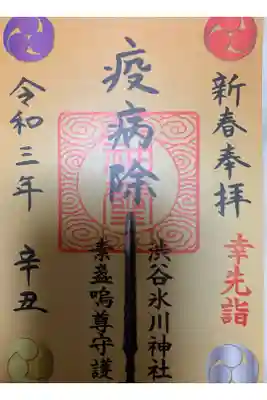 新春奉拝
幸先詣
疫病除
渋谷氷川神社
素盞嗚尊守護
令和三年 辛丑